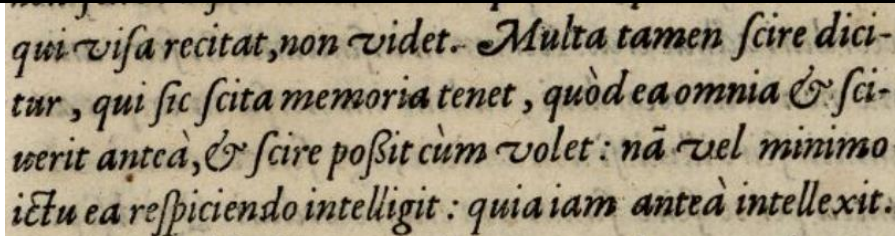 qui viſa recitat, non videt. Multa tamen ſcire dici-
tur, qui ſic ſcita memoria tenet, quòd ea omnia & ſci-
uerit anteà, & ſcire poßit cùm volet: nã vel minimo
ictu ea reſpiciendo intelligit: quia iam anteà intellexit.